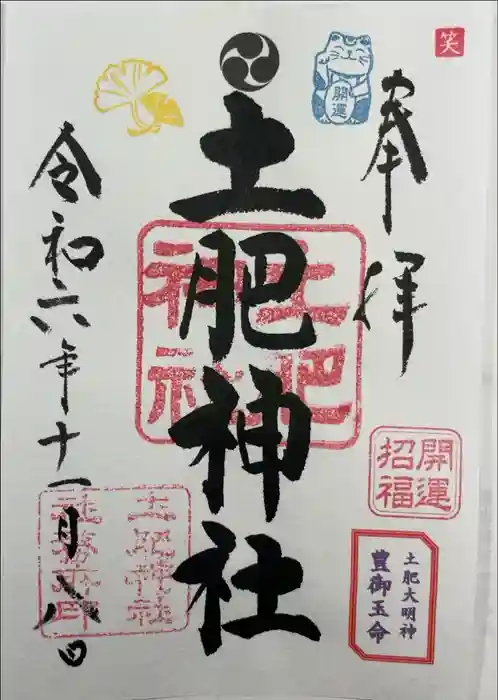 笑
奉拝
開運
土肥神社
土肥神社
開運
招福
土肥大明神
豊御玉命
令和六年十一月八日
土肥神社
社務所印